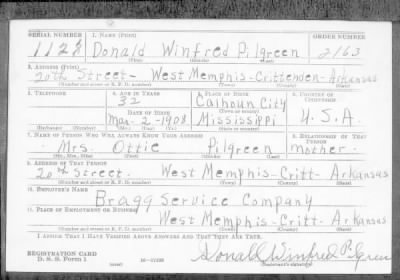 SERIAL NUMBER 1. NAME (Print) ORDER NUMBER
1128 Donald Winfred Pilgreen 2163
(First) (Middle) (Last)
2. ADDRESS (Print)
20th Street - West Memphis - Crittenden - Arkansas
(Number and street or R. F. D. number) (Town) (County) (State)
3. TELEPHONE 4. AGE IN YEARS 5. PLACE OF BIRTH 6. COUNTRY OF CITIZENSHIP
32 Calhoun City
DATE OF BIRTH (Town or county)
Mar. 2 - 1908 Mississippi U.S.A.
(Exchange) (Number) (Mo.) (Day) (Yr.) (State or country)
7. NAME OF PERSON WHO WILL ALWAYS KNOW YOUR ADDRESS 8. RELATIONSHIP OF THAT PERSON
Mrs. Ottie Pilgreen mother
(Mr., Mrs., Miss) (First) (Middle) (Last)
9. ADDRESS OF THAT PERSON
20th Street. West Memphis - Critt - Arkansas
(Number and street or R. F. D. number) (Town) (County) (State)
10. EMPLOYER'S NAME
Bragg Service Company
11. PLACE OF EMPLOYMENT OR BUSINESS
West Memphis - Critt - Arkansas
(Number and street or R. F. D. number) (Town) (County) (State)
I AFFIRM THAT I HAVE VERIFIED ABOVE ANSWERS AND THAT THEY ARE TRUE.
REGISTRATION CARD
D. S. S. Form 1 (over) 16-17105 Donald Winfred Pilgreen
(Registrant's signature)